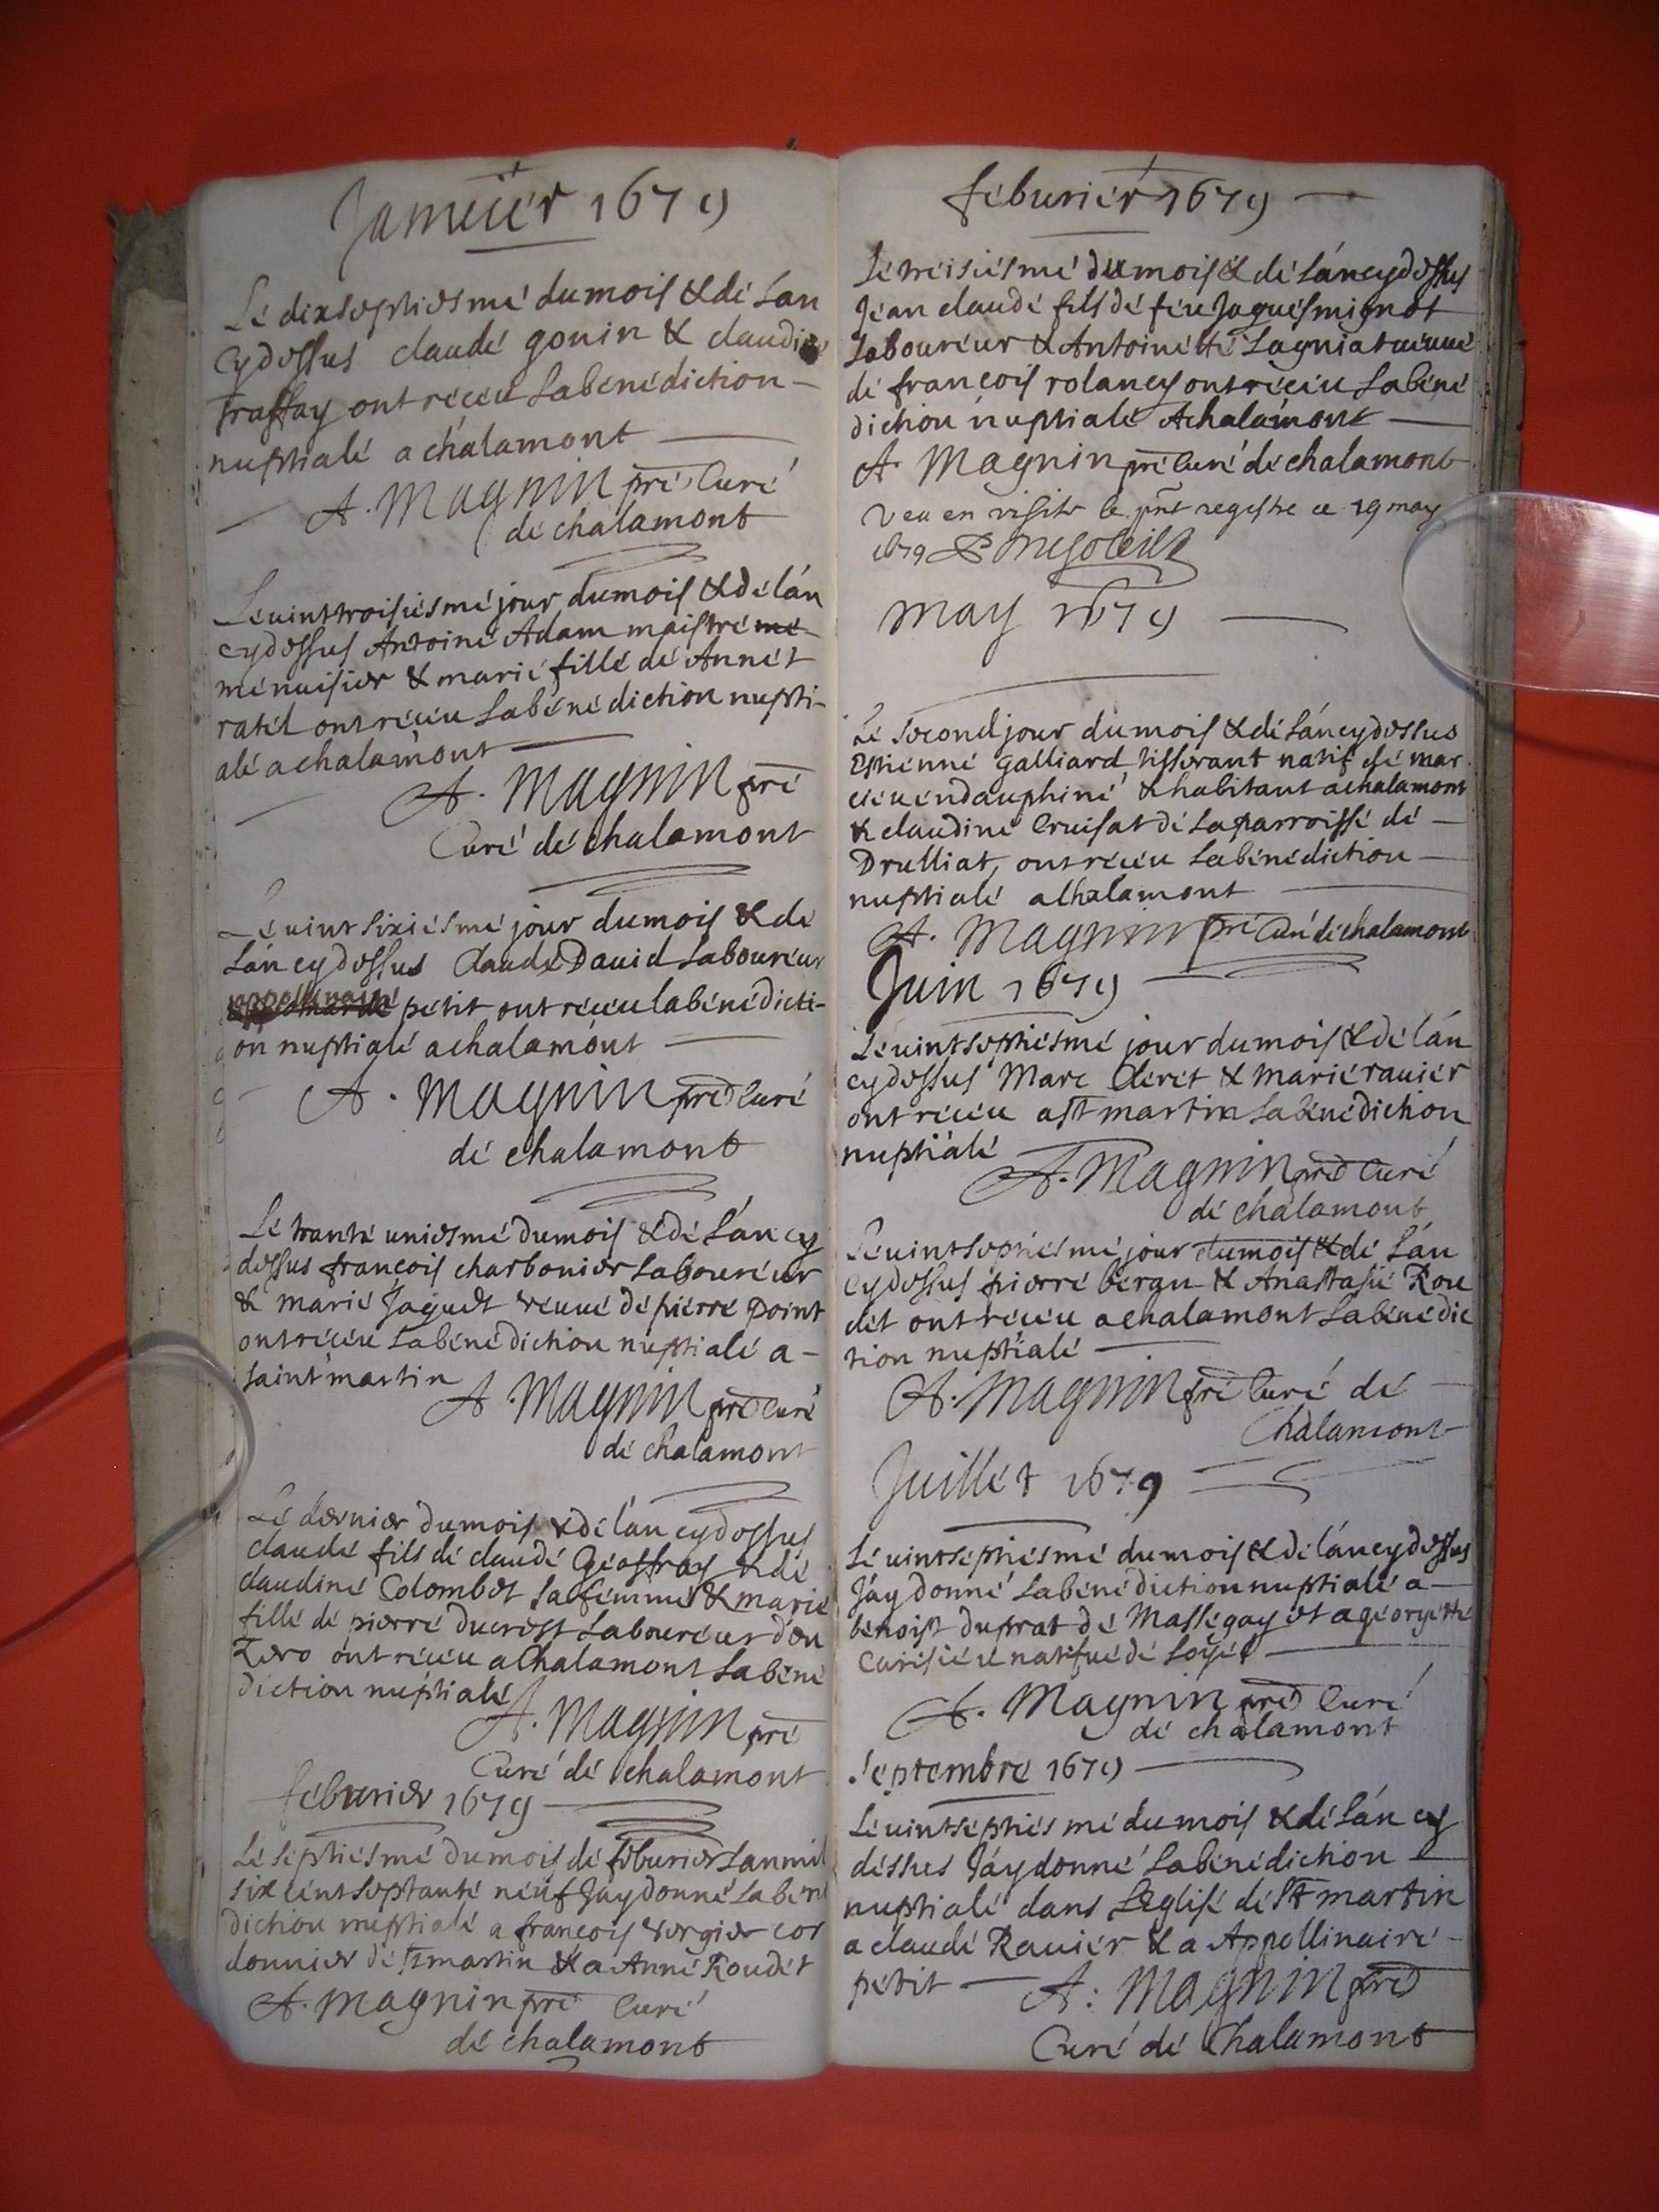 Januiér 1679
Lé dixseptiesmé dumois & dé Lán
cydessus claudé gonin & claudi
traffay ont récéu Labénédiction –
nuptialé achalamont —
A. Magnin pré Curé
dé chalamont
Lé uinttroisiésmé jour dumois & dé lán
cydessus Antoiné Adam maistré mé
ménuisier & marié fillé dé Annét
ratél ont récéu Labénédiction nupti-
alé achalamont —
A. Magnin pré
Curé dé chalamont
Lé uint sixiésmé jour dumois & dé
Lán cydessus Claudé Dauid Labouréur
& appollinairé pétit ont récéu labénédicti-
on nuptialé achalamont —
A. Magnin pré Curé
dé chalamont
Lé tranté uniesmé dumois & dé Lán cy
dessus françois charbonier Labouréur
& marié Jaquét ueuué dé piérré point
ont récéu Labénédiction nuptialé a –
saint martin
A. Magnin pré Curé
dé chalamont
Lé dernier dumois & dé lán cydessus
claudé fils dé claudé Géoffray & dé
claudiné Colombet sa fémmé & marié
fillé dé piérré ducrest Labouréur dou
Zero ont récéu achalamont Labéné
diction nuptialé
A. Magnin pré
Curé dé chalamont
féburier 1679 —
Lé séptiésmé dumois dé féburier Lanmil
six cént soptanté néuf Jáy donné Labén
diction nuptialé a françois uergier cor
donnier dé st martin & a Anné Roudét
A. Magnin pré Curé
dé chalamont
féburiér 1679 —
Lé tréisiésmé du mois & dé Láncydessus
Jéan claudé fils dé féu Jaqués mignot
Labouréur & Antoinétté Lagniat uéuué
dé françois rolancy ont récéu Labéné
diction nuptialé Achalamont —
A. Magnin pré Curé dé chalamont
Veu en visite le pnt registre ce 19 may
1679
may 1679 —
Lé second jour dumois & dé Láncydessus
Estiénné galliard tisserant natif dé mar
ciéu éndauphiné & habitant achalamont
& claudiné Cruisat dé Laparroissé dé —
Drulliat, ont récéu Labénédiction —
nuptialé achalamont —
A. Magnin pré Curé dé chalamont
Juin 1679 —
Lé uintséptiésmé jour dumois & dé lán
cydessus Marc Cléret & marié rauiér
ont récéu a st martin Labénédiction
nuptialé
A. Magnin pré Curé
dé chalamont
Lé uintséptiésmé jour dumois & dé Lán
cydessus piérré bérgu & Anastasié Rou
dét ont récéu achalamont Labénédic
tion nuptialé —
A. Magnin pré Curé dé
Chalamont
Juillét 1679
Lé uintséptiésmé dumois & dé láncydessus
Jáy donné Labénédiction nuptialé a —
bénoist duprat dé Masségay et a géorgétté
natifué dé Loyés —
A. Magnin pré Curé
dé chalamont
Septembré 1679 —
Lé uintséptiésmé dumois & dé Lán cy
déssus Jáy donné Labénédiction —
nuptialé dans Léglisé dé st martin
a claudé Rauiér & a Appollinairé –
pétit — A. Magnin pré
Curé dé Chalamont